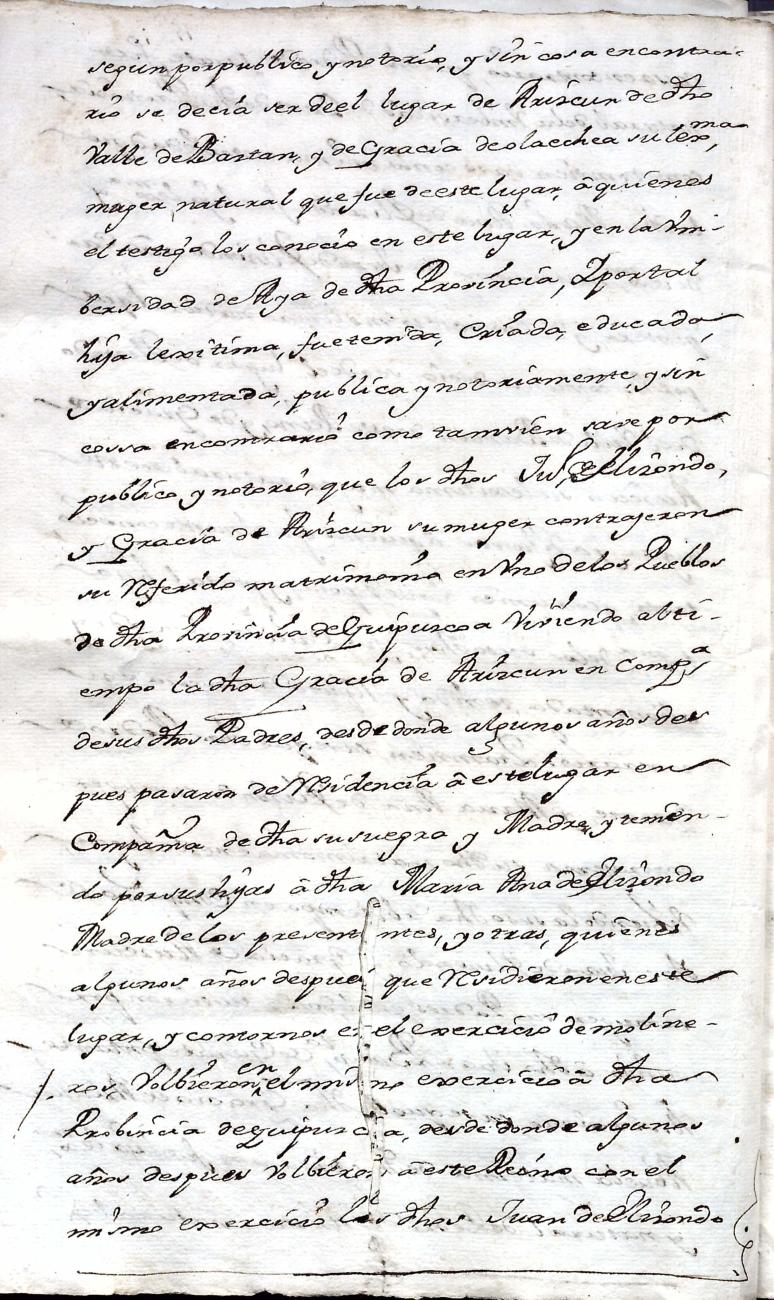 segun por publico y notorio, y sin cosa en contra-
rio se decia ser de el lugar de Arizcun de dho
Valle de Baztan, y de Gracia de olaechea su lexma
muger natural que fue de este lugar, â quienes
el testigo los conocio en este lugar, y en la Vni-
bersidad de Aya de dha Provincia, Y por tal
hija lexitima, fue tenida, Criada, educada,
y alimentada, publica y notoriamente, y sin
cossa en contrario como tamvien save por
publico, y notorio, que los dhos Jun de Elizondo,
y Gracia de Arizcun su muger contrajeron
su Referido matrimonio en Vno de los Pueblos
de dha Provincia de Guipuzcoa Viviendo al ti-
empo la dha Gracia de Arizcun en Compa
de sus dhos Padres, desde donde algunos años des
pues pasaron de Residencia â este lugar en
Compañia de dha su suegra y Madre, y tenien-
do por sus hijas â dha Maria Ana de Elizondo
Madre de los presentantes, y otras, quienes
algunos años despues que Residieron en este
lugar, y contornos en el exercicio de moline-
ros, Volbieron en el mismo exercicio â dha
Probincia de Guipuzcoa, desde donde algunos
años despues Volbieron â este Reino con el
mismo exercicio los dhos Juan de Elizondo